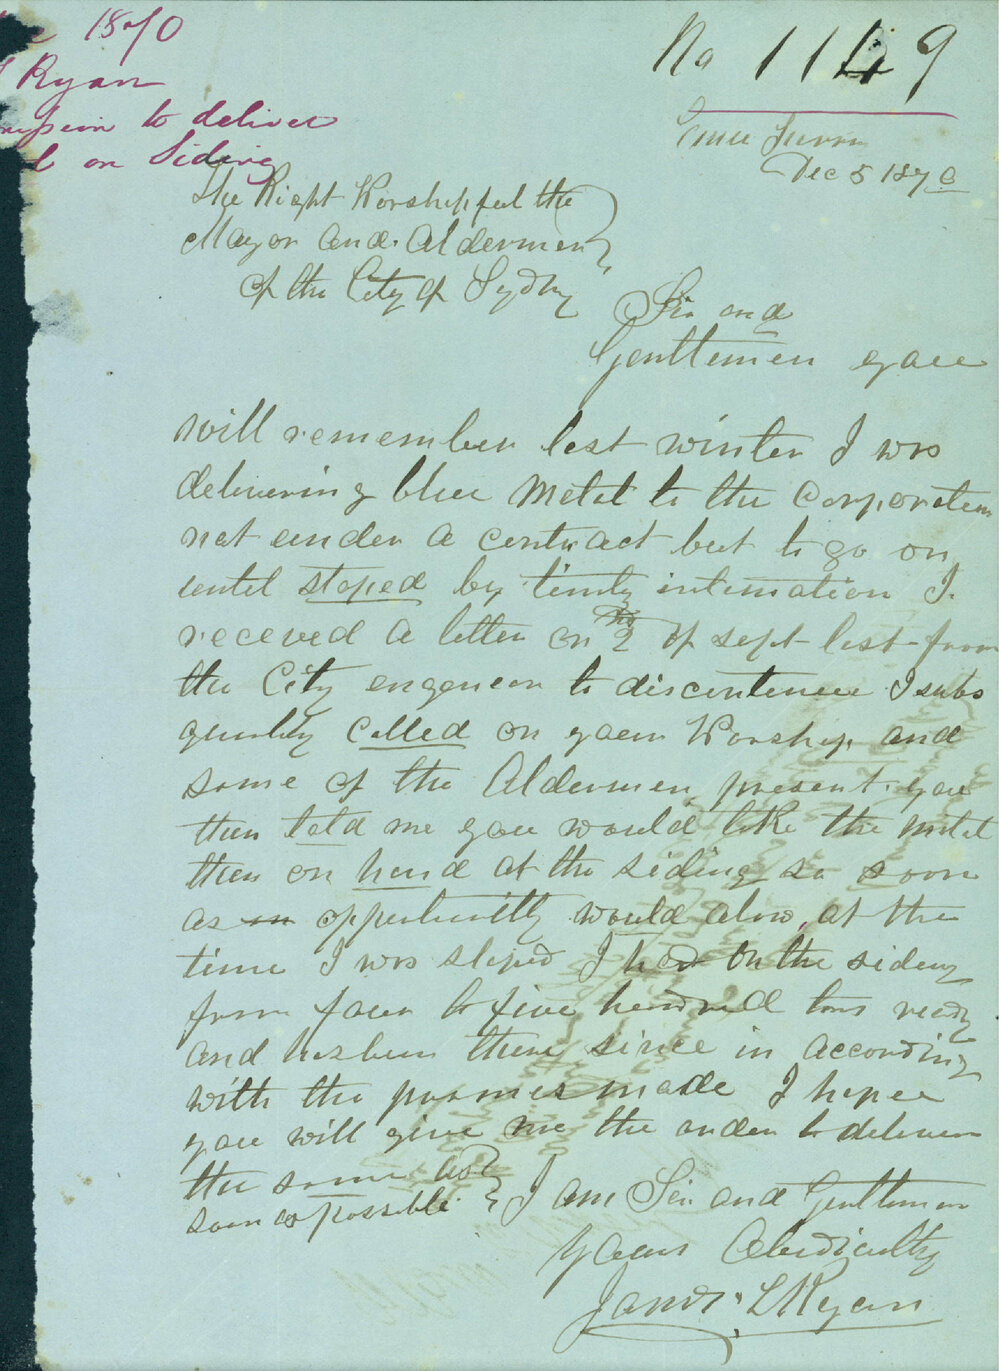 1870
Ryan
to deliver
on Siding
No 1149
Emu
Dec 5 1870
The Right Worshipful the
Mayor and Aldermen
of the City of Sydny
Sir and
Gentlemen you
will remember last winter I was
delivering blue Metal to the Corporation
not under a contract but to go on
until stoped by timly intimation I
receved a letter on of sept last from
the City engeneer to discontinue I subs
quintly called on your Worship and
some of the Aldermen present. you
then told me you would like the metal
then on hand at the siding so soon
as oppertunitty would alow. at the
time I was stoped I had on the siding
from four to five hundred tons redy
and has been there since in according
with the promes made I hope
you will give me the order to deliver
the same as
soon as possible I am Sir and Gentlemen
Yours Obediently
James L Ryan